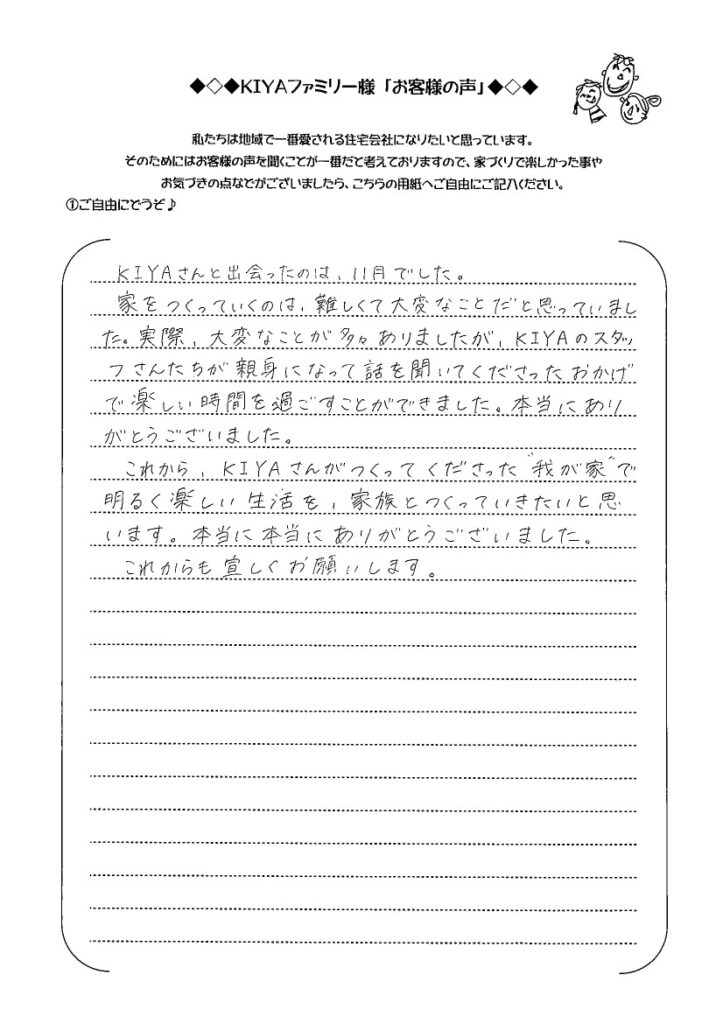 ◆◇◆KIYAファミリー様「お客様の声」◆◇◆
私たちは地域で一番愛される住宅会社になりたいと思っています。
そのためにはお客様の声を聞くことが一番だと考えておりますので、家づくりで楽しかった事や
お気づきの点などがございましたら、こちらの用紙へご自由にご記入ください。
①ご自由にどうぞ♪
KIYAさんと出会ったのは、11月でした。
家をつくっていくのは、難しくて大変なことだと思っていまし
た。実際、大変なことが多々ありましたが、KIYAのスタッ
フさんたちが親身になって話を聞いてくださったおかげ
で楽しい時間を過ごすことができました。本当にあり
がとうございました。
これから、KIYAさんがつくってくださった"我が家"で
明るく楽しい生活を、家族とつくっていきたいと思
います。本当に本当にありがとうございました。
これからも宜しくお願いします。